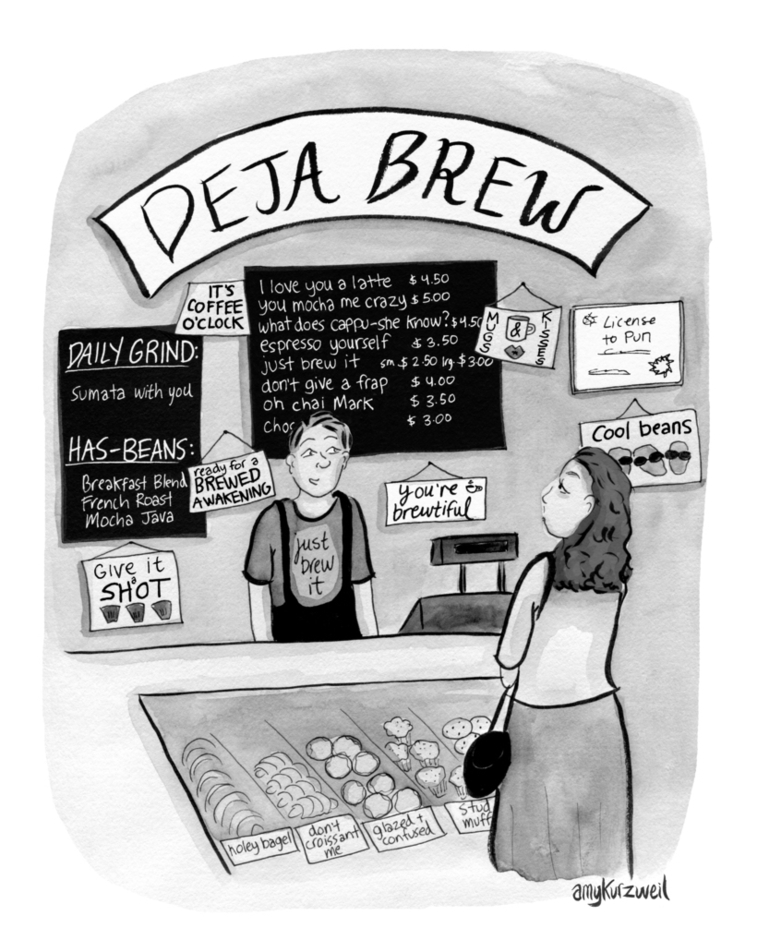 DEJA BREW
IT'S
COFFEE
O'CLOCK
I love you a latte $4.50
you mocha me crazy $5.00
what does cappu-she know? $4.50
espresso yourself $3.50
just brew it sm. $2.50 lrg. $3.00
don't give a frap $4.00
oh chai Mark $3.50
$3.00
MUGS
&
KISSES
License
to Pun
DAILY GRIND:
Sumata with you
HAS-BEANS:
Breakfast Blend
French Roast
Mocha Java
Cool beans
ready for a
BREWED
AWAKENING
you're
brewtiful
just
brew
it
Give it
a
SHOT
holey bagel
don't
croissant
me
glazed +
confused
stud
muff
amykurzweil